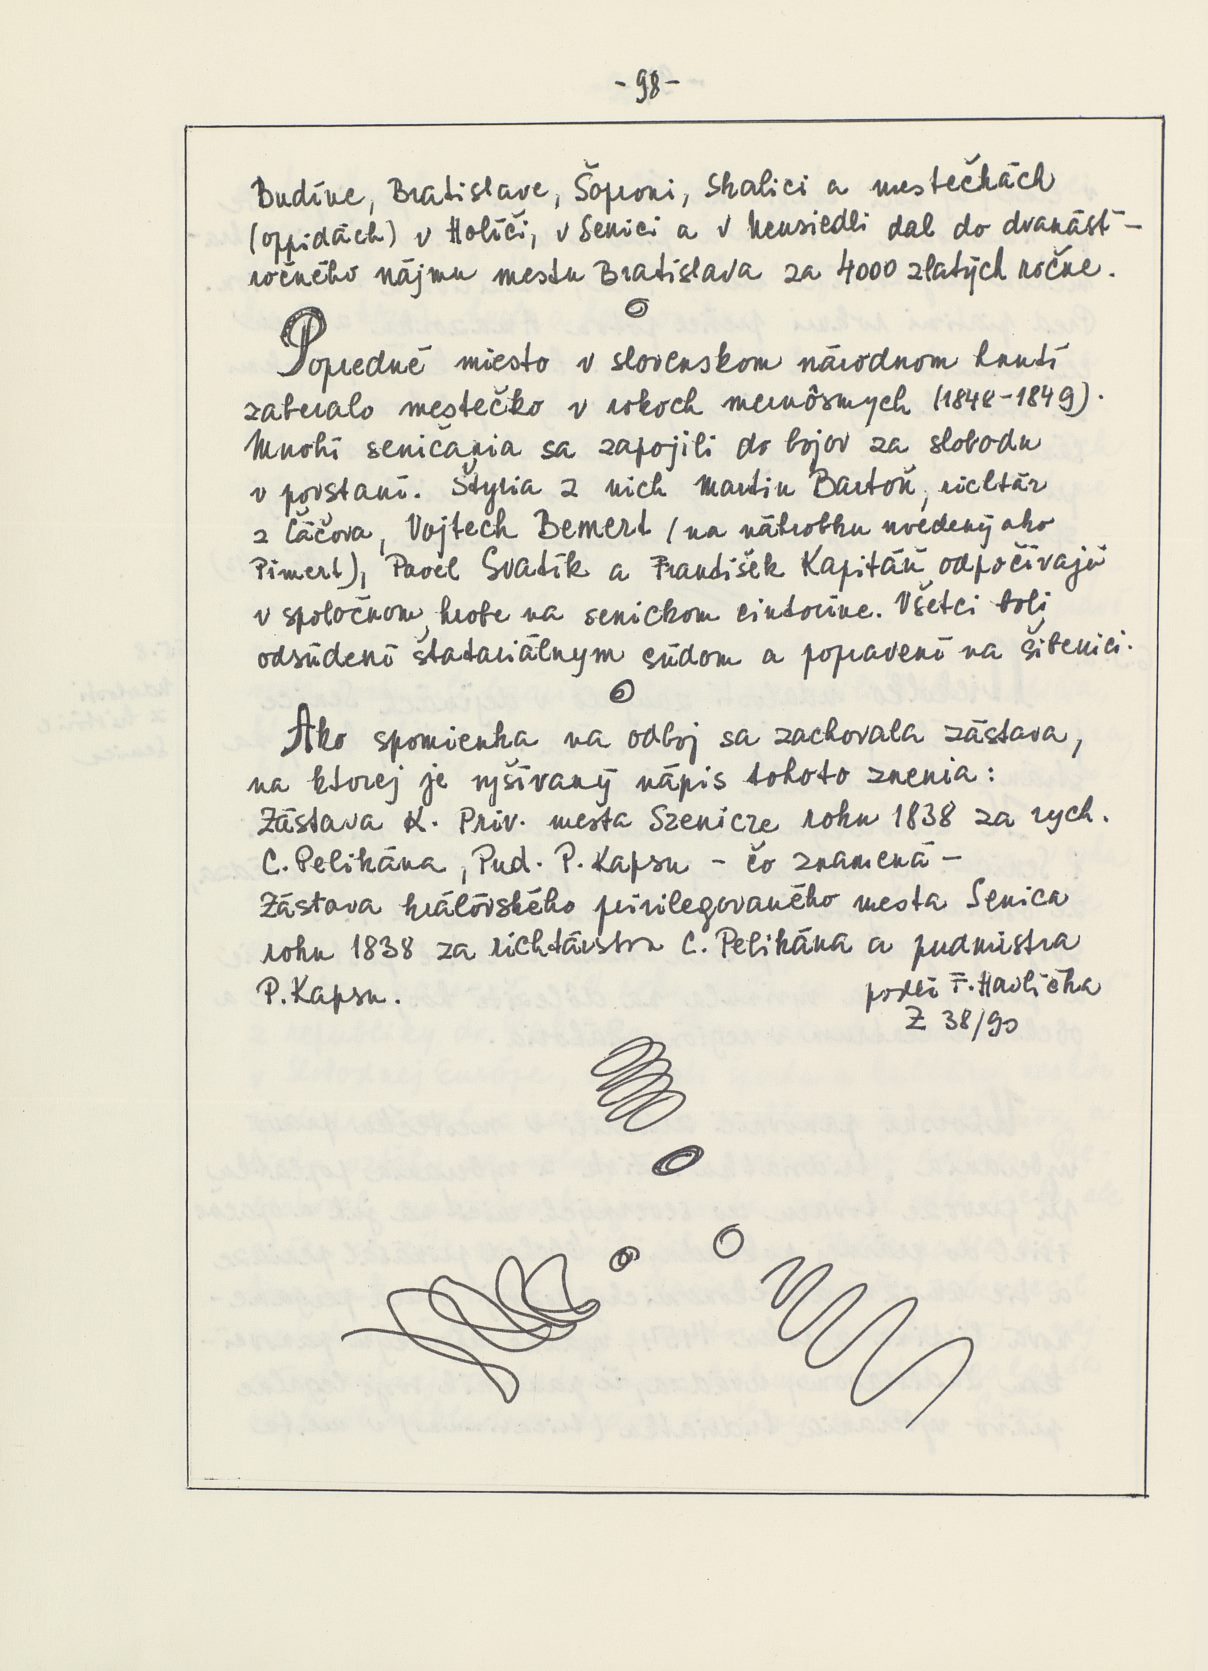 - 98 -
Budíne, Bratislave, Šoproni, Skalici a mestečkách
(oppidách) v Holíči, v Senici a v Neusiedli dal do dvanásť-
ročného nájmu mestu Bratislava za 4000 zlatých ročne.
Popredné miesto v slovenskom národnom hnutí
zaberalo mestečko v rokoch meruôsmych (1848-1849).
Mnohí seničania sa zapojili do bojov za slobodu
v povstaní. Štyria z nich Martin Bartoň, richtár
z Čáčova, Vojtech Bemert (na náhrobku uvedený ako
Pimert), Pavel Svatík a František Kapitáň odpočívajú
v spoločnom hrobe na senickom cintoríne. Všetci boli
odsúdení štatariálnym súdom a popravení na šibenici.
Ako spomienka na odboj sa zachovala zástava,
na ktorej je vyšívaný nápis tohoto znenia:
Zástava K. Priv. mesta Szenicze roku 1838 za rych.
C. Pelikána, Pud. P. Kapsu - čo znamená -
Zástava kráľovského privilegovaného mesta Senica
roku 1838 za richtárstva C. Pelikána a pudmistra
P. Kapsu.
podľa F. Havlíčka
Z 38/90